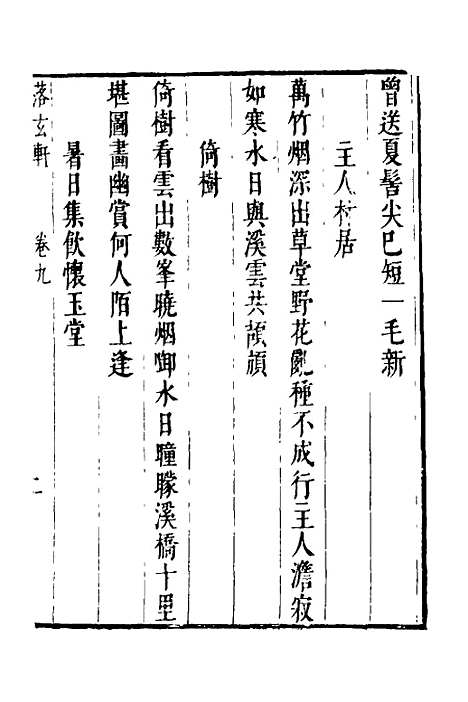 曾送夏髻尖已短一毛新
主人村居
萬竹烟深出草堂野花亂種不成行主人澹寂
如寒水日與溪雲共頡頏
倚樹
倚樹看雲出數峯曉烟啣水日曈曚溪橋十里
堪圖畵幽賞何人陌上逢
暑日集飲懷玉堂
落玄軒 卷九 二